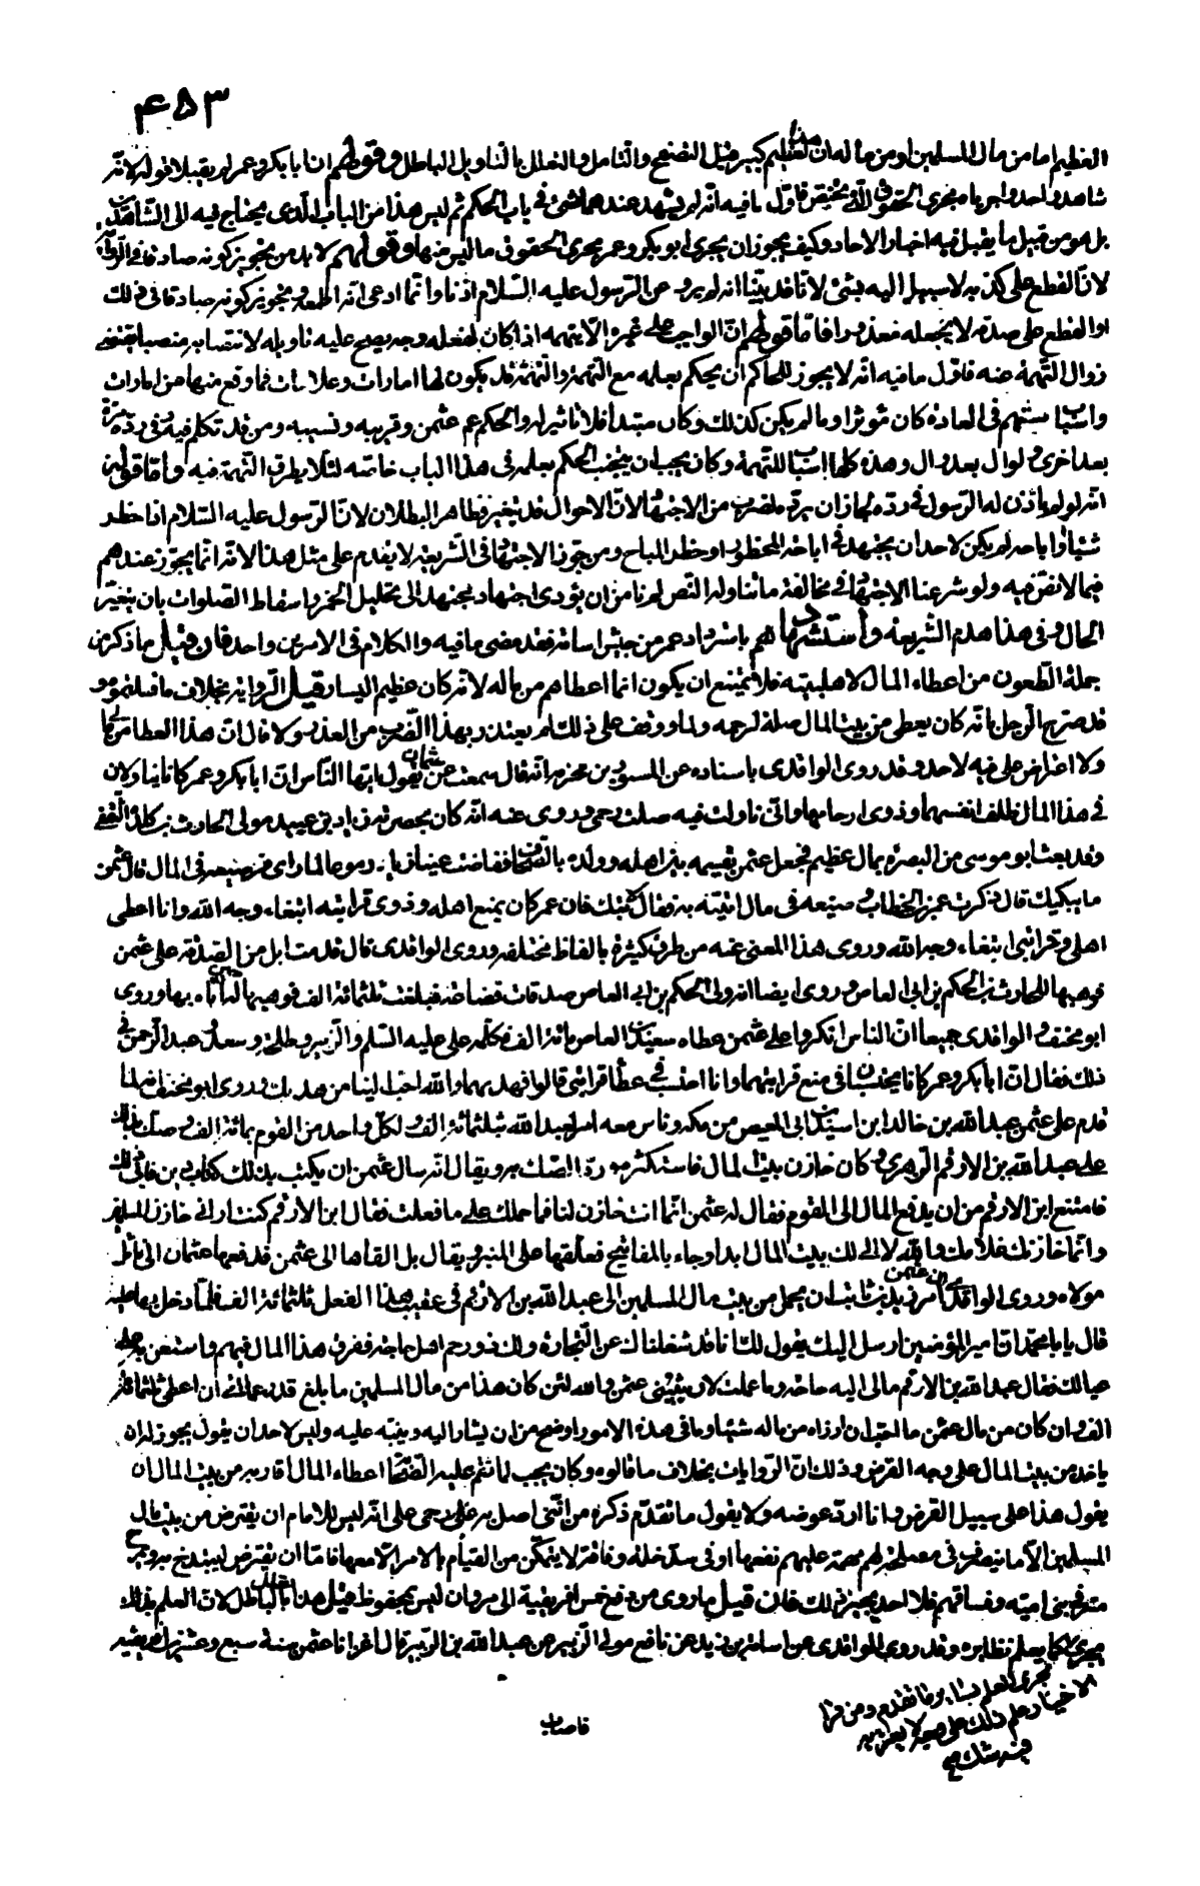 ٤٥٣
العظيم اما من مال المسلمين او من ماله ان هذا لعظيم كبير قبل التصفح والتامل والتعلل بالتاويل الباطل وقولهم ان ابا بكر وعمر لم يقبلا قوله لانه
شاهد واحد واجرياه مجرى الحقوق التى تختص فاول ما فيه انه لم يشهد عندهما بشئ فى باب الحكم ثم ليس هذا من الباب الذى يحتاج فيه الى الشاهدين
بل هو من قبيل ما يقبل فيه اخبار الاحاد وكيف يجوز ان يجرى ابو بكر وعمر مجرى الحقوق ما ليس منها وقولهم لا بد من تجويز كونه صادقا فى الرواية
لان القطع على كذبه لا سبيل اليه بشئ لانا قد بينا انه لم يرو عن الرسول عليه السلام اذنا وانما ادعى انه اطمعه وتجويز كونه صادقا فى ذلك
او القطع على صدقه لا يجعله معذورا فاما قولهم ان الواجب على غيره الا يتهمه اذا كان لفعله وجه يصح عليه تاويله لانتصابه منصبا يقتضى
زوال التهمة عنه فاول ما فيه انه لا يجوز للحاكم ان يحكم بعلمه مع التهمة والتهمة قد يكون لها امارات وعلامات فما وقع منها عن امارات
واسباب يتهم فى العادة كان مؤثرا وما لم يكن كذلك وكان مبتدأ فلا تاثير له والحكم عم عثمن وقريبه ونسيبه ومن قد تكلم فيه وفى رده مرة
بعد اخرى ولوال بعد وال وهذه كلها اسباب للتهمة وكان يجب ان يتجنب الحكم بعلمه فى هذا الباب خاصة لئلا يطرق التهمة فيه واما قولهم
انه لو لم ياذن له الرسول فى رده لجاز ان يرده لضرب من الاجتهاد لان الاحوال قد يتغير فظاهر البطلان لان الرسول عليه السلام اذا حظر
شيئا او اباحه لم يكن لاحد ان يجتهد فى اباحة المحظور او حظر المباح ومن جوز الاجتهاد فى الشريعة لا يقدم على مثل هذا لانه انما يجوز عندهم
فيما لا نص فيه ولو شرعنا الاجتهاد فى مخالفة ما تناوله النص لم نامن ان يؤدى اجتهاد مجتهد الى تحليل الخمر واسقاط الصلوات بان يتغير
الحال وفى هذا هدم الشريعة واستشهادهم باسترداد عمر من جيش اسامة فقد مضى ما فيه والكلام فى الامرين واحد فان قيل ما ذكر من
جملة الطعون من اعطاء المال لاهل بيته فلا يمتنع ان يكون انما اعطاهم من ماله لانه كان عظيم اليسار قيل الرواية بخلاف ما قلتموه و
قد صرح الرجل بانه كان يعطى من بيت المال صلة لرحمه ولما ووقف على ذلك لم يعتذر بهذا الضرب من العذر ولا قال ان هذا العطا من مالى
ولا اعتراض على فيه لاحد وقد روى الواقدى باسناده عن المسور بن مخرمة انه قال سمعت عثمان يقول ايها الناس ان ابا بكر وعمر كانا يتاولان
فى هذا المال ظلف انفسهما وذوى ارحامهما وانى تاولت فيه صلة رحمى وروى عنه انه كان بحضرته زياد بن عبيد مولى الحارث بن كلدة الثقفى
وقد بعث ابو موسى من البصرة بمال عظيم فجعل عثمن يقسمه بين اهله وولده بالصحاف ففاضت عينا زياد دموعا لما راى من صنيعه فى المال فقال عثمن
ما يبكيك قال ذكرت عمر بن الخطاب وصنيعه فى مال اتيته به فقال عثمن فان عمر كان يمنع اهله وذوى قرابته ابتغاء وجه الله وانا اعطى
اهلى وقرابتى ابتغاء وجه الله وروى هذا المعنى عنه من طرق كثيرة بالفاظ مختلفة وروى الواقدى قال قدمت ابل من الصدقة على عثمن
فوهبها للحارث بن الحكم بن ابى العاص وروى ايضا انه ولى الحكم بن ابى العاص صدقات قضاعة فبلغت ثلثمائة الف فوهبها له حين اتاه بها وروى
ابو مخنف والواقدى جميعا ان الناس انكروا على عثمن عطاه سعيد بن العاص مائة الف فكلمه على عليه السلم والزبير وطلحة وسعد وعبد الرحمن فى
ذلك فقال ان ابا بكر وعمر كانا يحتسبان فى منع قرابتهما وانا احتسب فى عطا قرابتى قالوا فهديهما والله احب الينا من هديك وروى ابو مخنف انه لما
قدم على عثمن عبد الله بن خالد بن اسيد بن ابى العيص من مكة وناس معه امر لعبد الله بثلثمائة الف ولكل واحد من القوم بمائة الف وصك بذلك
على عبد الله بن الارقم الزهرى وكان خازن بيت المال فاستكثره ورد الصك به ويقال انه سال عثمن ان يكتب بذلك كتاب دين فابى ذلك
فامتنع ابن الارقم من ان يدفع المال الى القوم فقال له عثمن انما انت خازن لنا فما حملك على ما فعلت فقال ابن الارقم كنت ارانى خازن المسلمين
وانما خازنك غلامك والله لا الى لك بيت المال ابدا وجاء بالمفاتيح فعلقها على المنبر ويقال بل القاها الى عثمن فدفعها عثمان الى ناتل
مولاه وروى الواقدى ان عثمن امر زيد بن ثابت ان يحمل من بيت مال المسلمين الى عبد الله بن الارقم فى عقيب هذا الفعل ثلثمائة الف فلما دخل بها عليه
قال يا با محمد ان امير المؤمنين ارسل اليك يقول لك انا قد شغلناك عن التجارة ولك ذو رحم اهل حاجة ففرق هذا المال فيهم واستعن به على
عيالك فقال عبد الله بن الارقم مالى اليه حاجة وما عملت لان يثيبنى عثمن والله لئن كان هذا من مال المسلمين ما بلغ قدر عمالتى ان اعطى ثلثمائة
الف وان كان من مال عثمن ما احب ان ارزاه من ماله شيئا وما فى هذه الامور اوضح من ان يشار اليه وينبه عليه وليس لاحد ان يقول يجوز له ان
ياخذ من بيت المال على وجه القرض وذلك ان الروايات بخلاف ما قالوه وكان يجب لما نقم عليه الصحابة اعطاء المال اقاربه من بيت المال ان
يقول هذا على سبيل القرض وانا ارد عوضه ولا يقول ما تقدم ذكره من اننى اصل به رحمى على انه ليس للامام ان يقترض من بيت مال
المسلمين الا ما ينصرف فى مصلحة لهم مهمة عليهم نفعها او فى سد خلة وفاقة لا يتمكن من القيام بالامر الا معها فاما ان يقترض ليتبذخ به ويمرح
مترفى بنى امية وفساقهم فلا احد يجيز ذلك فان قيل ما روى من دفع خمس افريقية الى مروان ليس بمحفوظ قيل هذا تعلل بالباطل لان العلم بذلك
يجرى كما يعلم نظايره وقد روى الواقدى عن اسامة بن زيد عن نافع مولى الزبير عن عبد الله بن الزبير قال اغزانا عثمن سنة سبع وعشرين افريقية
مجرى العلم بساير ما تقدم ومن قرا
الاخبار علم ذلك على وجه لا يعترض
فيه شك صح
فاصاب